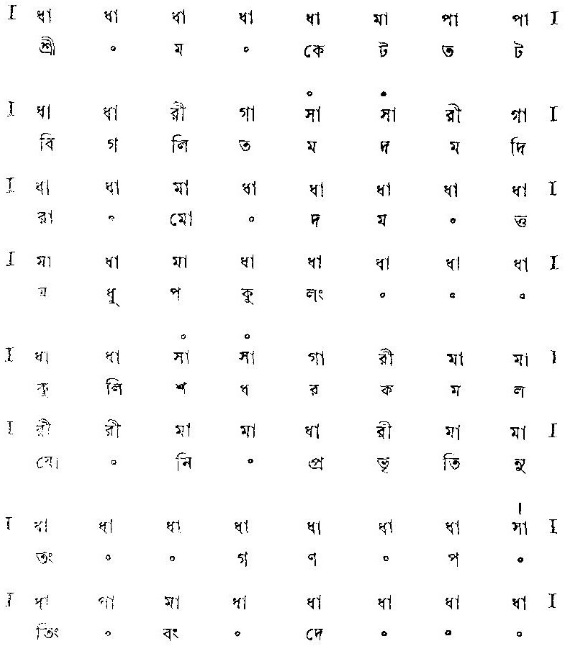 I ধা ধা ধা ধা ধা মা পা পা I
শ্রী ॰ ম ॰ কে ট ত ট
॰ •
I ধা ধা রী গা সা সা রী গা I
বি গ লি ত ম দ ম দি
I ধা ধা মা ধা ধা ধা ধা ধা I
রা ॰ মো ॰ দ ম ॰ ত্ত
I মা ধা মা ধা ধা ধা ধা ধা I
ম ধু প কু লং ॰ ॰ ॰
॰ ॰
I ধা ধা সা সা গা রী মা মা I
কু লি শ ধ র ক ম ল
I রী রী মা মা ধা রী মা মা I
যো ॰ নি ॰ প্র ভৃ তি নু
।
I ধা ধা ধা ধা ধা ধা ধা সা I
তং ॰ ॰ গ ণ ॰ প •
I ধা পা মা ধা ধা ধা ধা ধা I
তিং ॰ বং ॰ দে • • ॰